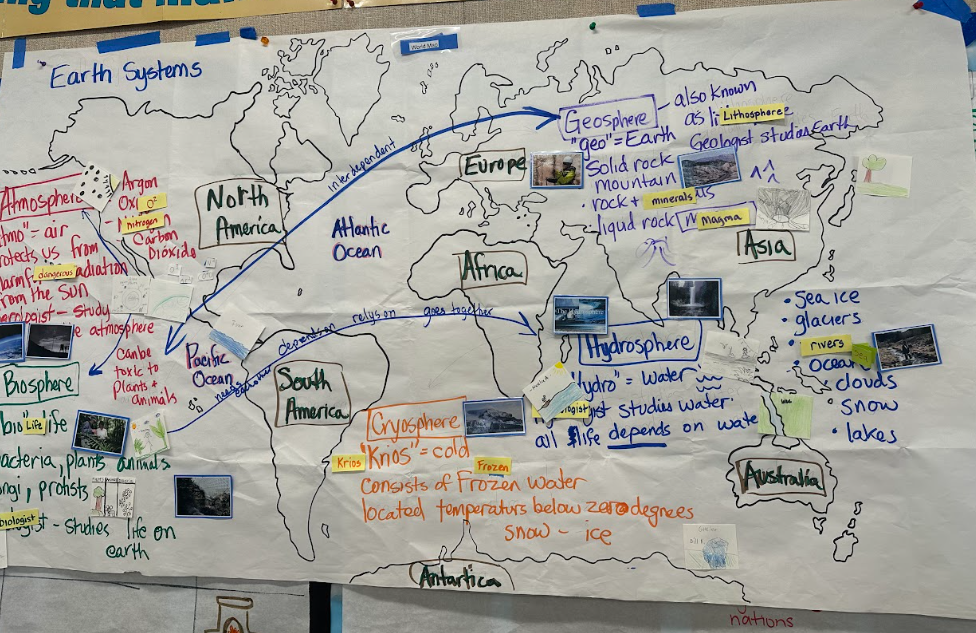 Earth Systems
World Map
Geosphere
also known
as li Lithosphere
"geo" = Earth
Geologist studies Earth
Solid rock
mountain
• rock + minerals
liquid rock Magma
interdependent
Europe
North
America
Atlantic
Ocean
Africa
Asia
Atmosphere
Argon
Oxi O²
nitrogen
Carbon
Dioxide
tmo" = air
otects us from
harmf dangerous radiation
from the sun
erologist - study
e atmosphere
can be
toxic to
plants +
animals
Pacific
Ocean
needs each other depend on relys on goes together
South
America
Biosphere
bio" Life life
bacteria, plants animals
ngi, protists
biologist
ologist - studies life on
earth
Cryosphere
Krios
"Krios" = cold
Frozen
consists of Frozen water
located temperaturs below zero degrees
snow - ice
Hydrosphere
"Hydro" = Water
ologist gist studies water
all life depends on wate
• Sea ice
• glaciers
• rivers
• ocean
• clouds
• snow
• lakes
Australia
Antartica
nations